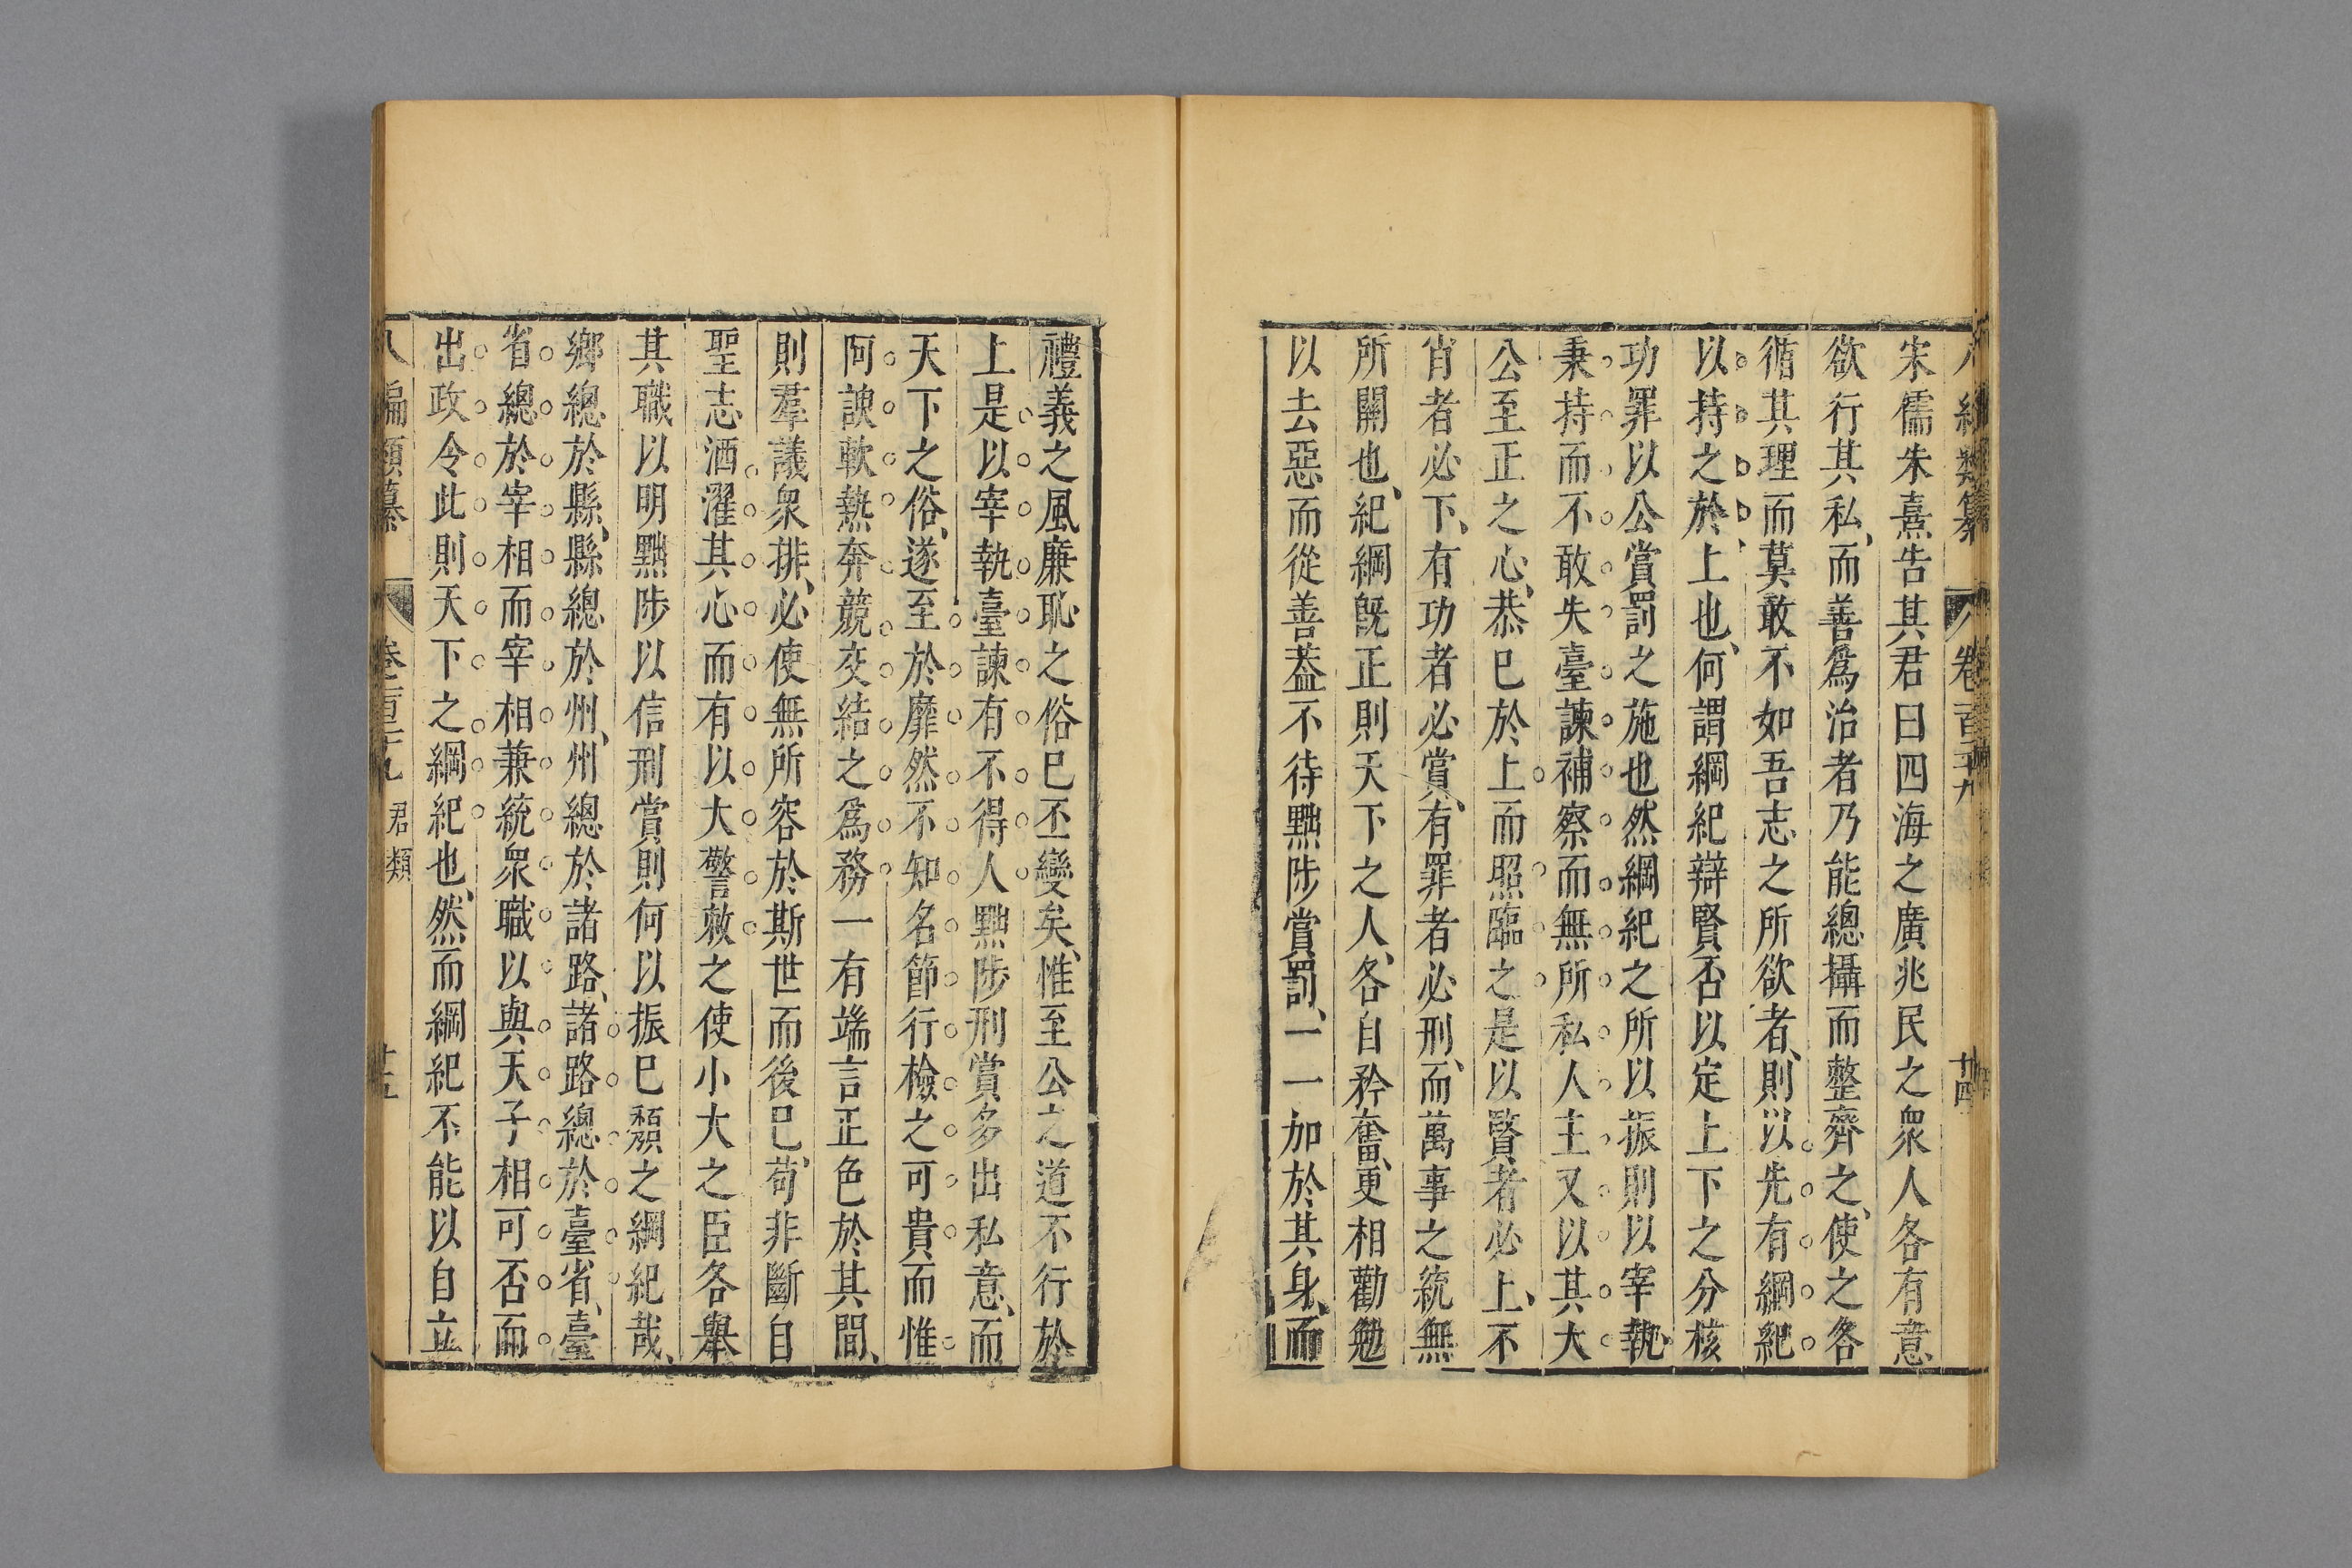 宋儒朱熹告其君曰四海之廣兆民之衆人各有意
欲行其私、而善爲治者乃能總攝而整齊之、使之各
循其理而莫敢不如吾志之所欲者、則以先有綱紀
以持之於上也、何謂綱紀辯賢否以定上下之分核
功罪以公賞罰之施也然綱紀之所以振則以宰執
秉持而不敢失臺諫補察而無所私人主又以其大
公至正之心、恭已於上而照臨之是以賢者必上、不
肖者必下、有功者必賞、有罪者必刑、而萬事之統無
所關也、紀綱旣正則天下之人、各自矜奮、更相勸勉
以去惡而從善葢不待黜陟賞罰、一一加於其身、而
禮義之風廉恥之俗已丕變矣、惟至公之道不行於
上是以宰執臺諫有不得人黜陟刑賞多出私意、而
天下之俗、遂至於靡然不知名節行檢之可貴而惟
阿諛軟熱奔競交結之爲務一有端言正色於其間、
則羣議衆排、必使無所容於斯世而後已、苟非斷自
聖志洒濯其心而有以大警敕之使小大之臣各舉
其職以明黜陟以信刑賞則何以振已頹之綱紀哉、
鄉總於縣、縣總於州、州總於諸路、諸路總於臺省、臺
省總於宰相而宰相兼統衆職以與天子相可否而
出政令此則天下之綱紀也、然而綱紀不能以自立
八編類纂 卷二百二十九 君類 廿五